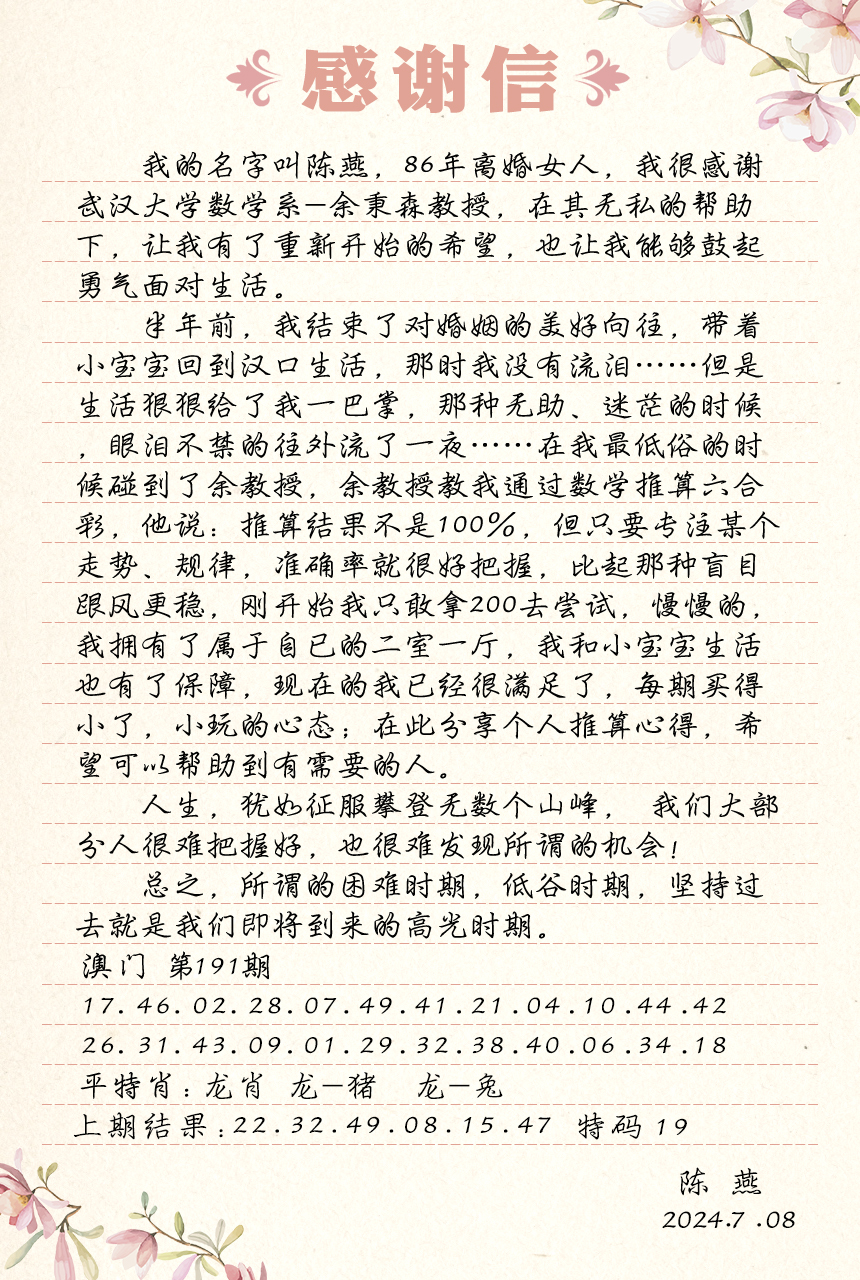 感谢信
我的名字叫陈燕，86年离婚女人，我很感谢
武汉大学数学系—余秉森教授，在其无私的帮助
下，让我有了重新开始的希望，也让我能够鼓起
勇气面对生活。
半年前，我结束了对婚姻的美好向往，带着
小宝宝回到汉口生活，那时我没有流泪……但是
生活狠狠给了我一巴掌，那种无助、迷茫的时候
，眼泪不禁的往外流了一夜……在我最低俗的时
候碰到了余教授，余教授教我通过数学推算六合
彩，他说：推算结果不是100%，但只要专注某个
走势、规律，准确率就很好把握，比起那种盲目
跟风更稳，刚开始我只敢拿200去尝试，慢慢的，
我拥有了属于自已的二室一厅，我和小宝宝生活
也有了保障，现在的我已经很满足了，每期买得
小了，小玩的心态；在此分享个人推算心得，希
望可以帮助到有需要的人。
人生，犹如征服攀登无数个山峰， 我们大部
分人很难把握好，也很难发现所谓的机会！
总之，所谓的困难时期，低谷时期，坚持过
去就是我们即将到来的高光时期。
澳门 第191期
17.46.02.28.07.49.41.21.04.10.44.42
26.31.43.09.01.29.32.38.40.06.34.18
平特肖：龙肖 龙—猪 龙—兔
上期结果：22.32.49.08.15.47 特码 19
陈 燕
2024.7.08